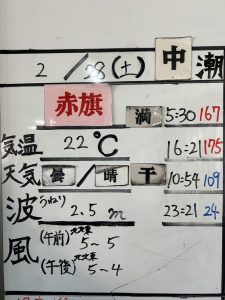 2/28(土) 中潮
赤旗 満 5:30 167
気温 22℃ 16:21 175
天気 曇/晴 干 10:54 109
波 うねり 2.5m 23:21 24
風 (午前) 北北東 5~5
(午後) 北北東 5~4